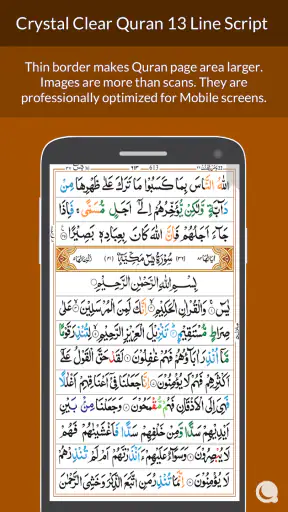 Crystal Clear Quran 13 Line Script
Thin border makes Quran page area larger.
Images are more than scans. They are
professionally optimized for Mobile screens.
اللهُ النَّاسَ بِمَا كَسَبُوْا مَا تَرَكَ عَلٰى ظَهْرِهَا مِنْ
دَآبَّةٍ وَّلٰكِنْ يُّؤَخِّرُهُمْ اِلٰٓى اَجَلٍ مُّسَمًّىۚ فَاِذَا
جَآءَ اَجَلُهُمْ فَاِنَّ اللهَ كَانَ بِعِبَادِهٖ بَصِيْرًا
بِسْمِ اللهِ الرَّحْمٰنِ الرَّحِيْمِ
يٰسٓ وَالْقُرْاٰنِ الْحَكِيْمِ اِنَّكَ لَمِنَ الْمُرْسَلِيْنَ عَلٰى
صِرَاطٍ مُّسْتَقِيْمٍ تَنْزِيْلَ الْعَزِيْزِ الرَّحِيْمِ لِتُنْذِرَ قَوْمًا
مَّآ اُنْذِرَ اٰبَآؤُهُمْ فَهُمْ غٰفِلُوْنَ لَقَدْ حَقَّ الْقَوْلُ عَلٰٓى
اَكْثَرِهِمْ فَهُمْ لَا يُؤْمِنُوْنَ اِنَّا جَعَلْنَا فِيْٓ اَعْنَاقِهِمْ اَغْلٰلًا
فَهِىَ اِلَى الْاَذْقَانِ فَهُمْ مُّقْمَحُوْنَ وَجَعَلْنَا مِنْۢ بَيْنِ
اَيْدِيْهِمْ سَدًّا وَّمِنْ خَلْفِهِمْ سَدًّا فَاَغْشَيْنٰهُمْ فَهُمْ
لَا يُبْصِرُوْنَ وَسَوَآءٌ عَلَيْهِمْ ءَاَنْذَرْتَهُمْ اَمْ لَمْ تُنْذِرْهُمْ
لَا يُؤْمِنُوْنَ اِنَّمَا تُنْذِرُ مَنِ اتَّبَعَ الذِّكْرَ وَخَشِىَ الرَّحْمٰنَ